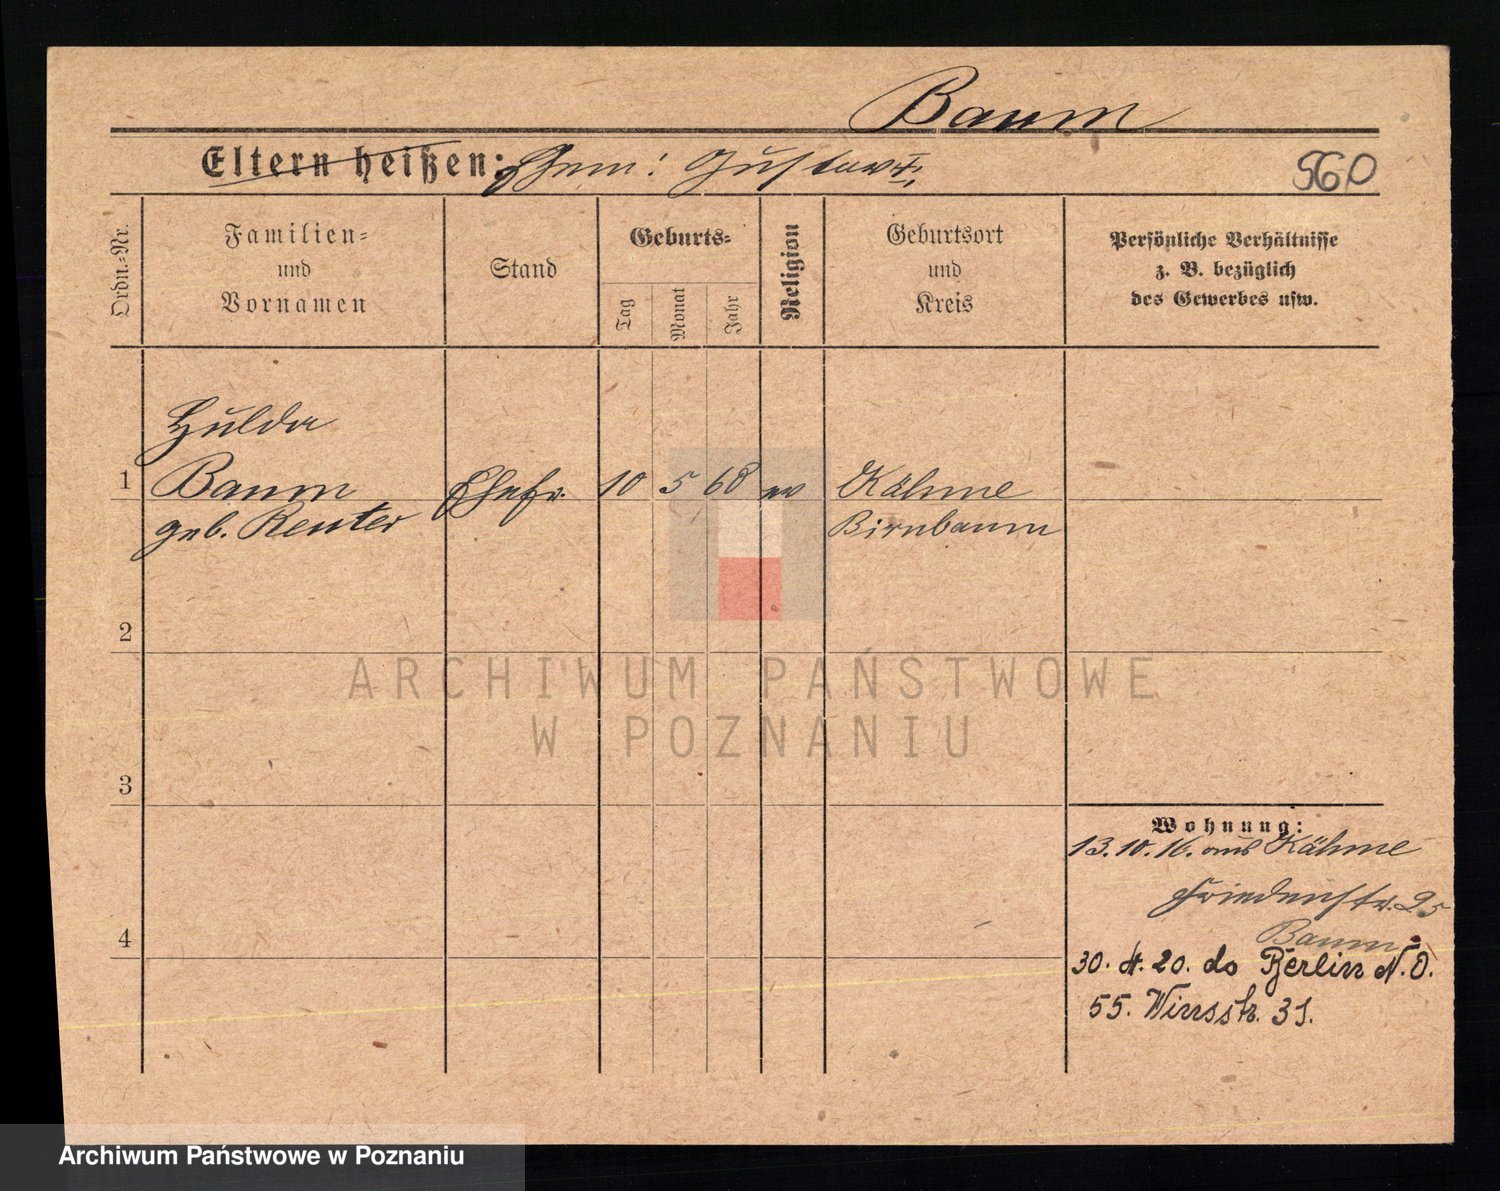 Baum
Eltern heißen: Ehem: Gustav
560
Ordn.=Nr.
Familien=
und
Vornamen
Stand
Geburts=
Tag
Monat
Jahr
Religion
Geburtsort
und
Kreis
Persönliche Verhältnisse
z. B. bezüglich
des Gewerbes usw.
Hulda
1 Baum Ehefr. 10 5 68 ev Kähme
geb. Reuter Birnbaum
2
3
4
Wohnung:
13.10.16. aus Kähme
Friedenstr. 25
Baum.
30. 4. 20. do Berlin N.O.
55. Winsstr. 31.
ARCHIWUM PAŃSTWOWE
W POZNANIU
Archiwum Państwowe w Poznaniu